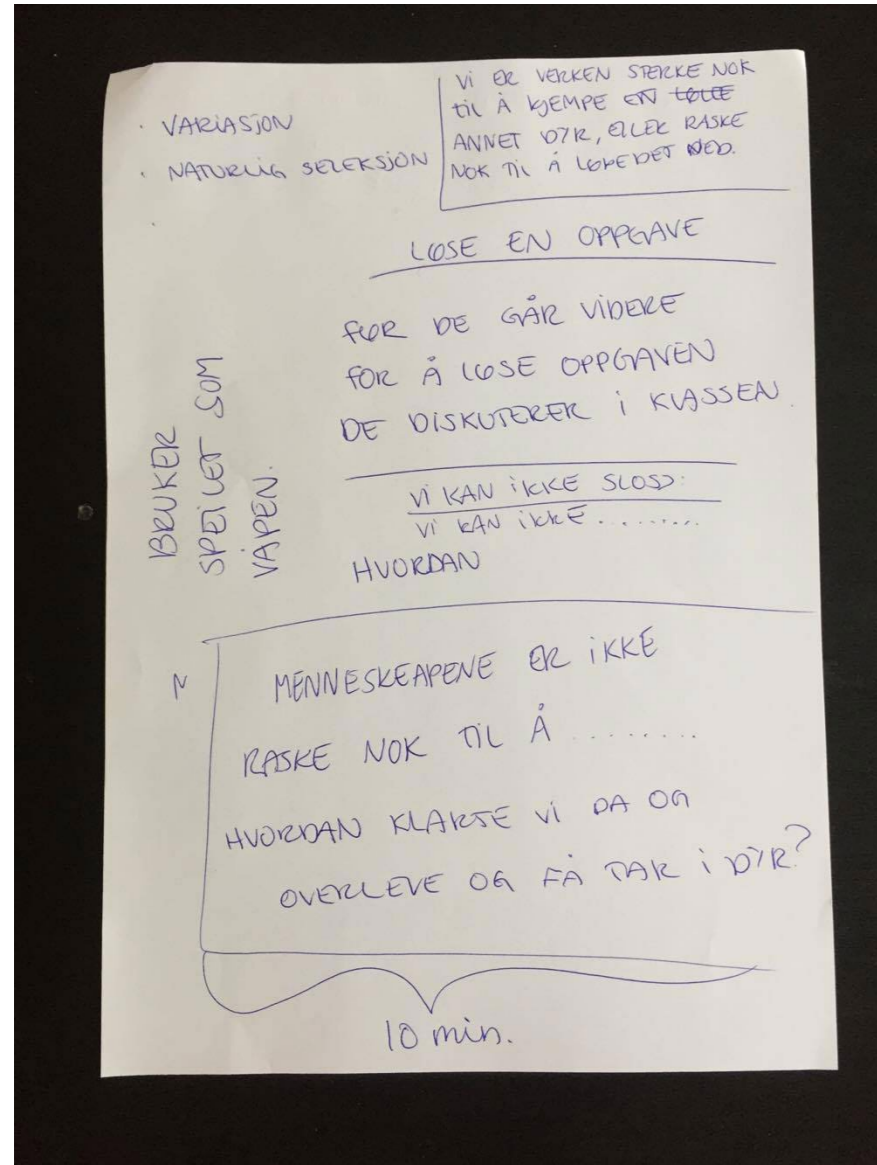 · VARIASJON
· NATURLIG SELEKSJON
·
Vi ER VERKEN STERKE NOK
til Å KJEMPE EN
ANNET DYR, ELLER RASKE
NOK TIL Å LØPE DET NED.
LØSE EN OPPGAVE
FØR DE GÅR VIDERE
FOR Å LØSE OPPGAVEN
DE DISKUTERER i KLASSEN.
BRUKER
SPEILET SOM
VÅPEN.
Vi KAN iKKE SLOSS:
Vi KAN iKKE.........
HVORDAN
N
MENNESKEAPENE ER iKKE
RASKE NOK TIL Å ........
HVORDAN KLARTE Vi DA OG
OVERLEVE OG FÅ TAK i DYR?
10 min.